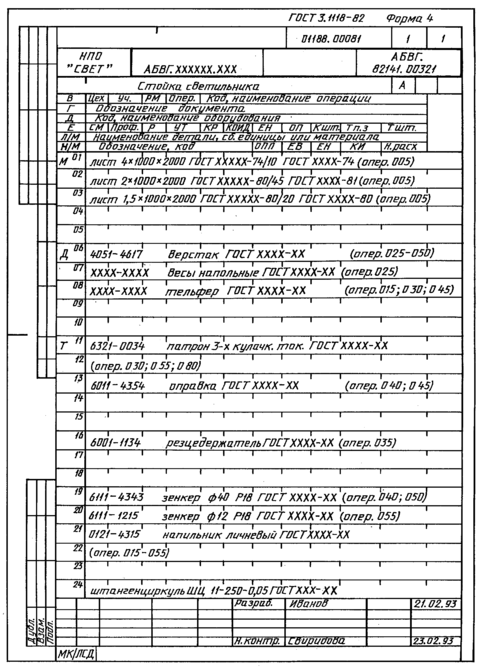 ГОСТ 3.1118-82 Форма 4
01188.00081 1 1
НПО "СВЕТ" АБВГ.XXXXXX.XXX АБВГ. 02141.00321
Стойка светильника А
В Цех Уч. РМ Опер. Код, наименование операции
Г Обозначение документа
Д Код, наименование оборудования
Е СМ Проф. Р УТ КР КОИД ЕН ОП Кшт. Тп.з Тшт.
Л/М Наименование детали, сб. единицы или материала
Н/М Обозначение, код ОПП ЕВ ЕН КИ Н.расх
М 01 лист 4×1000×2000 ГОСТ XXXXX-74/10 ГОСТ XXXX-74 (опер. 005)
02 лист 2×1000×2000 ГОСТ XXXXX-80/45 ГОСТ XXXX-81 (опер. 005)
03 лист 1,5×1000×2000 ГОСТ XXXXX-80/20 ГОСТ XXXX-80 (опер 005)
04
05
Д 06 4051-4617 верстак ГОСТ XXXX-XX (опер. 025-050)
07 XXXX-XXXX весы напольные ГОСТ XXXX-XX (опер. 025)
08 XXXX-XXXX тельфер ГОСТ XXXX-XX (опер. 015; 030; 045)
09
10
Т 11 6321-0034 патрон 3-х кулачк. ток. ГОСТ XXXX-XX
12 (опер. 030; 055; 080)
13 6011-4354 оправка ГОСТ XXXX-XX (опер. 040; 045)
14
15
16 6001-1134 резцедержатель ГОСТ XXXX-XX (опер. 035)
17
18
19 6111-4343 зенкер ф40 Р18 ГОСТ XXXX-XX (опер. 040; 050)
20 6111-1215 зенкер ф12 Р18 ГОСТ XXXX-XX (опер. 055)
21 0121-4315 напильник личневый ГОСТ XXXX-XX
22 (опер. 015-055)
23
24 штангенциркуль ШЦ 11-250-0,05 ГОСТ XXX-XX
Разраб. Иванов 21.02.93
Дубл.
Взам.
Подл.
Н.контр. Свиридова 23.02.93
МК/ЛСД